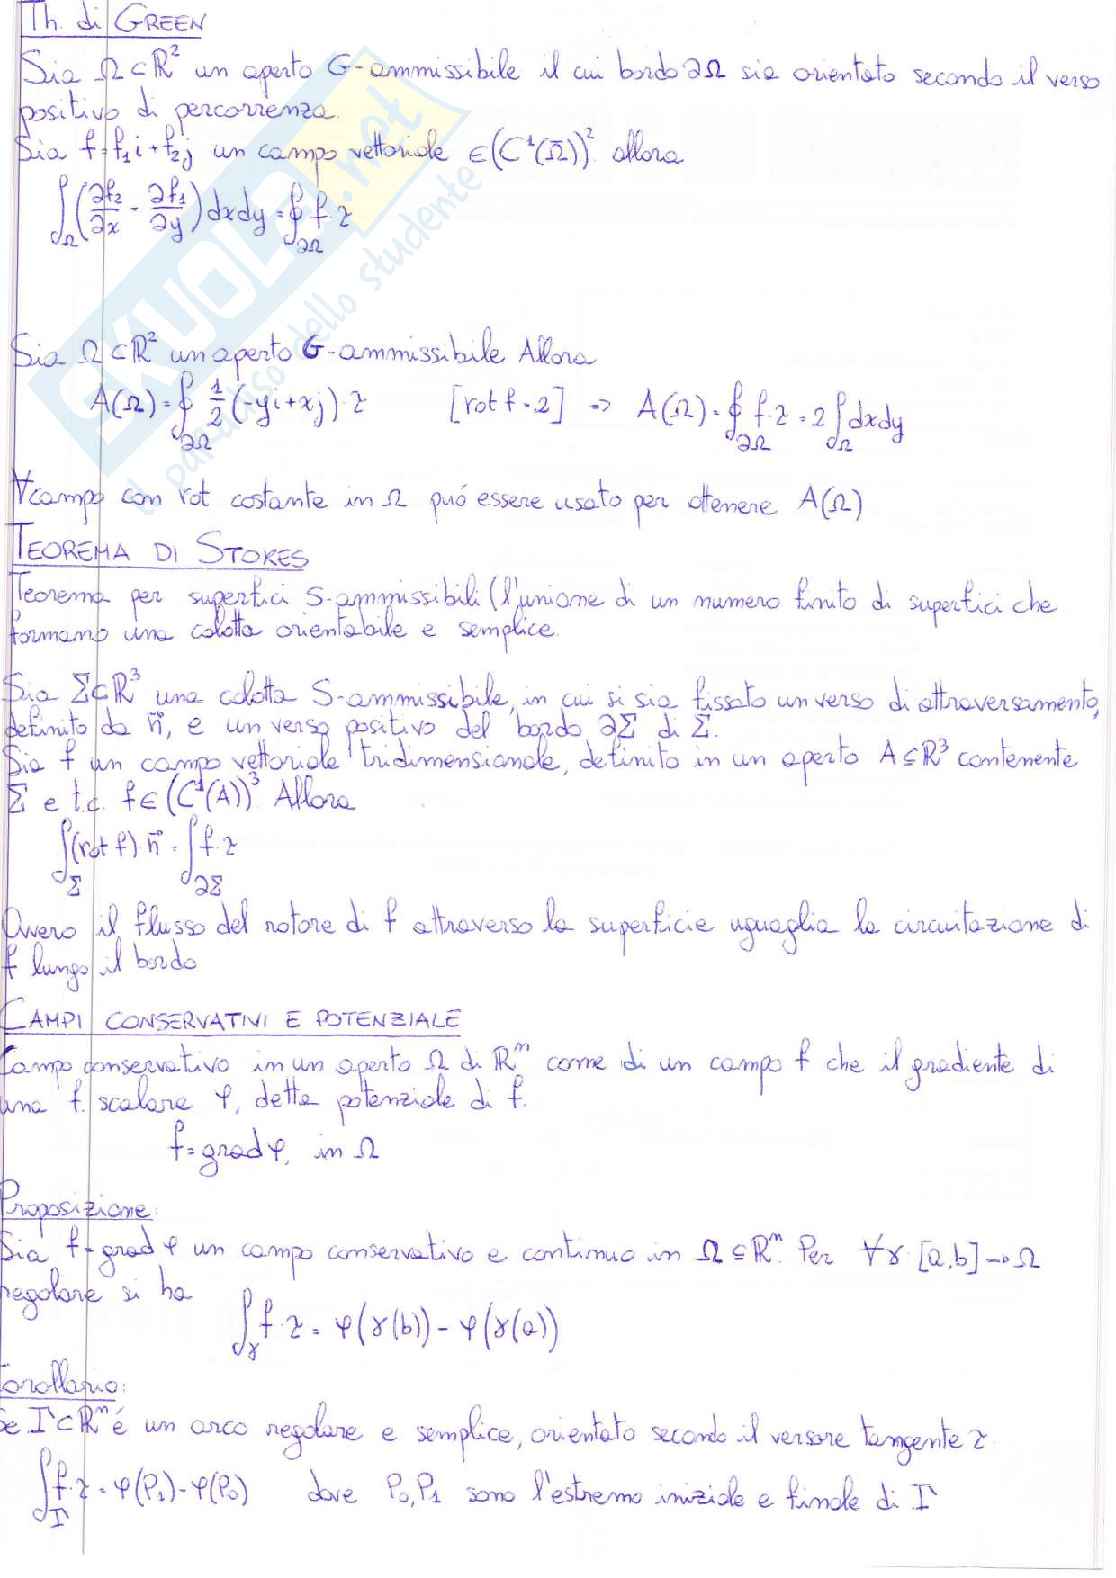 Th. di GREEN
Sia Ω⊂ℝ² un aperto G-ammissibile il cui bordo ∂Ω sia orientato secondo il verso
positivo di percorrenza.
Sia f=f₁i+f₂j un campo vettoriale ∈(C¹(Ω̄))² allora
∫_Ω(∂f₂/∂x - ∂f₁/∂y)dxdy=∮_∂Ω f·τ
Sia Ω⊂ℝ² un aperto G-ammissibile Allora
A(Ω)=∮_∂Ω 1/2(-yi+xj)·τ [rot f=2] => A(Ω)=∮_∂Ω f·τ=2∫_Ω dxdy
∀campo con rot costante in Ω puó essere usato per ottenere A(Ω)
TEOREMA DI STOKES
Teorema per superfici S-ammissibili (l'unione di un numero finito di superfici che
formano una calotta orientabile e semplice.
Sia Σ⊂ℝ³ una calotta S-ammissibile, in cui si sia fissato un verso di attraversamento,
definito da n⃗, e un verso positivo del bordo ∂Σ di Σ.
Sia f un campo vettoriale tridimensionale, definito in un aperto A⊆ℝ³ contenente
Σ e t.c. f∈(C¹(A))³ Allora
∫_Σ(rot f)·n⃗=∫_∂Σ f·τ
Ovvero il flusso del rotore di f attraverso la superficie uguaglia la circuitazione di
f lungo il bordo
CAMPI CONSERVATIVI E POTENZIALE
Campo conservativo in un aperto Ω di ℝᵐ come di un campo f che il gradiente di
una f. scalare φ, detta potenziale di f.
f=grad φ, in Ω
Proposizione:
Sia f=grad φ un campo conservativo e continuo in Ω⊆ℝⁿ. Per ∀γ:[a,b]→Ω
regolare si ha
∫_γ f·τ=φ(γ(b))-φ(γ(a))
Corollario:
Se Γ⊂ℝᵐ é un arco regolare e semplice, orientato secondo il versore tangente τ
∫_Γ f·τ=φ(P₁)-φ(P₀) dove P₀,P₁ sono l'estremo iniziale e finale di Γ
SKUOLA.net
il paradiso dello studente